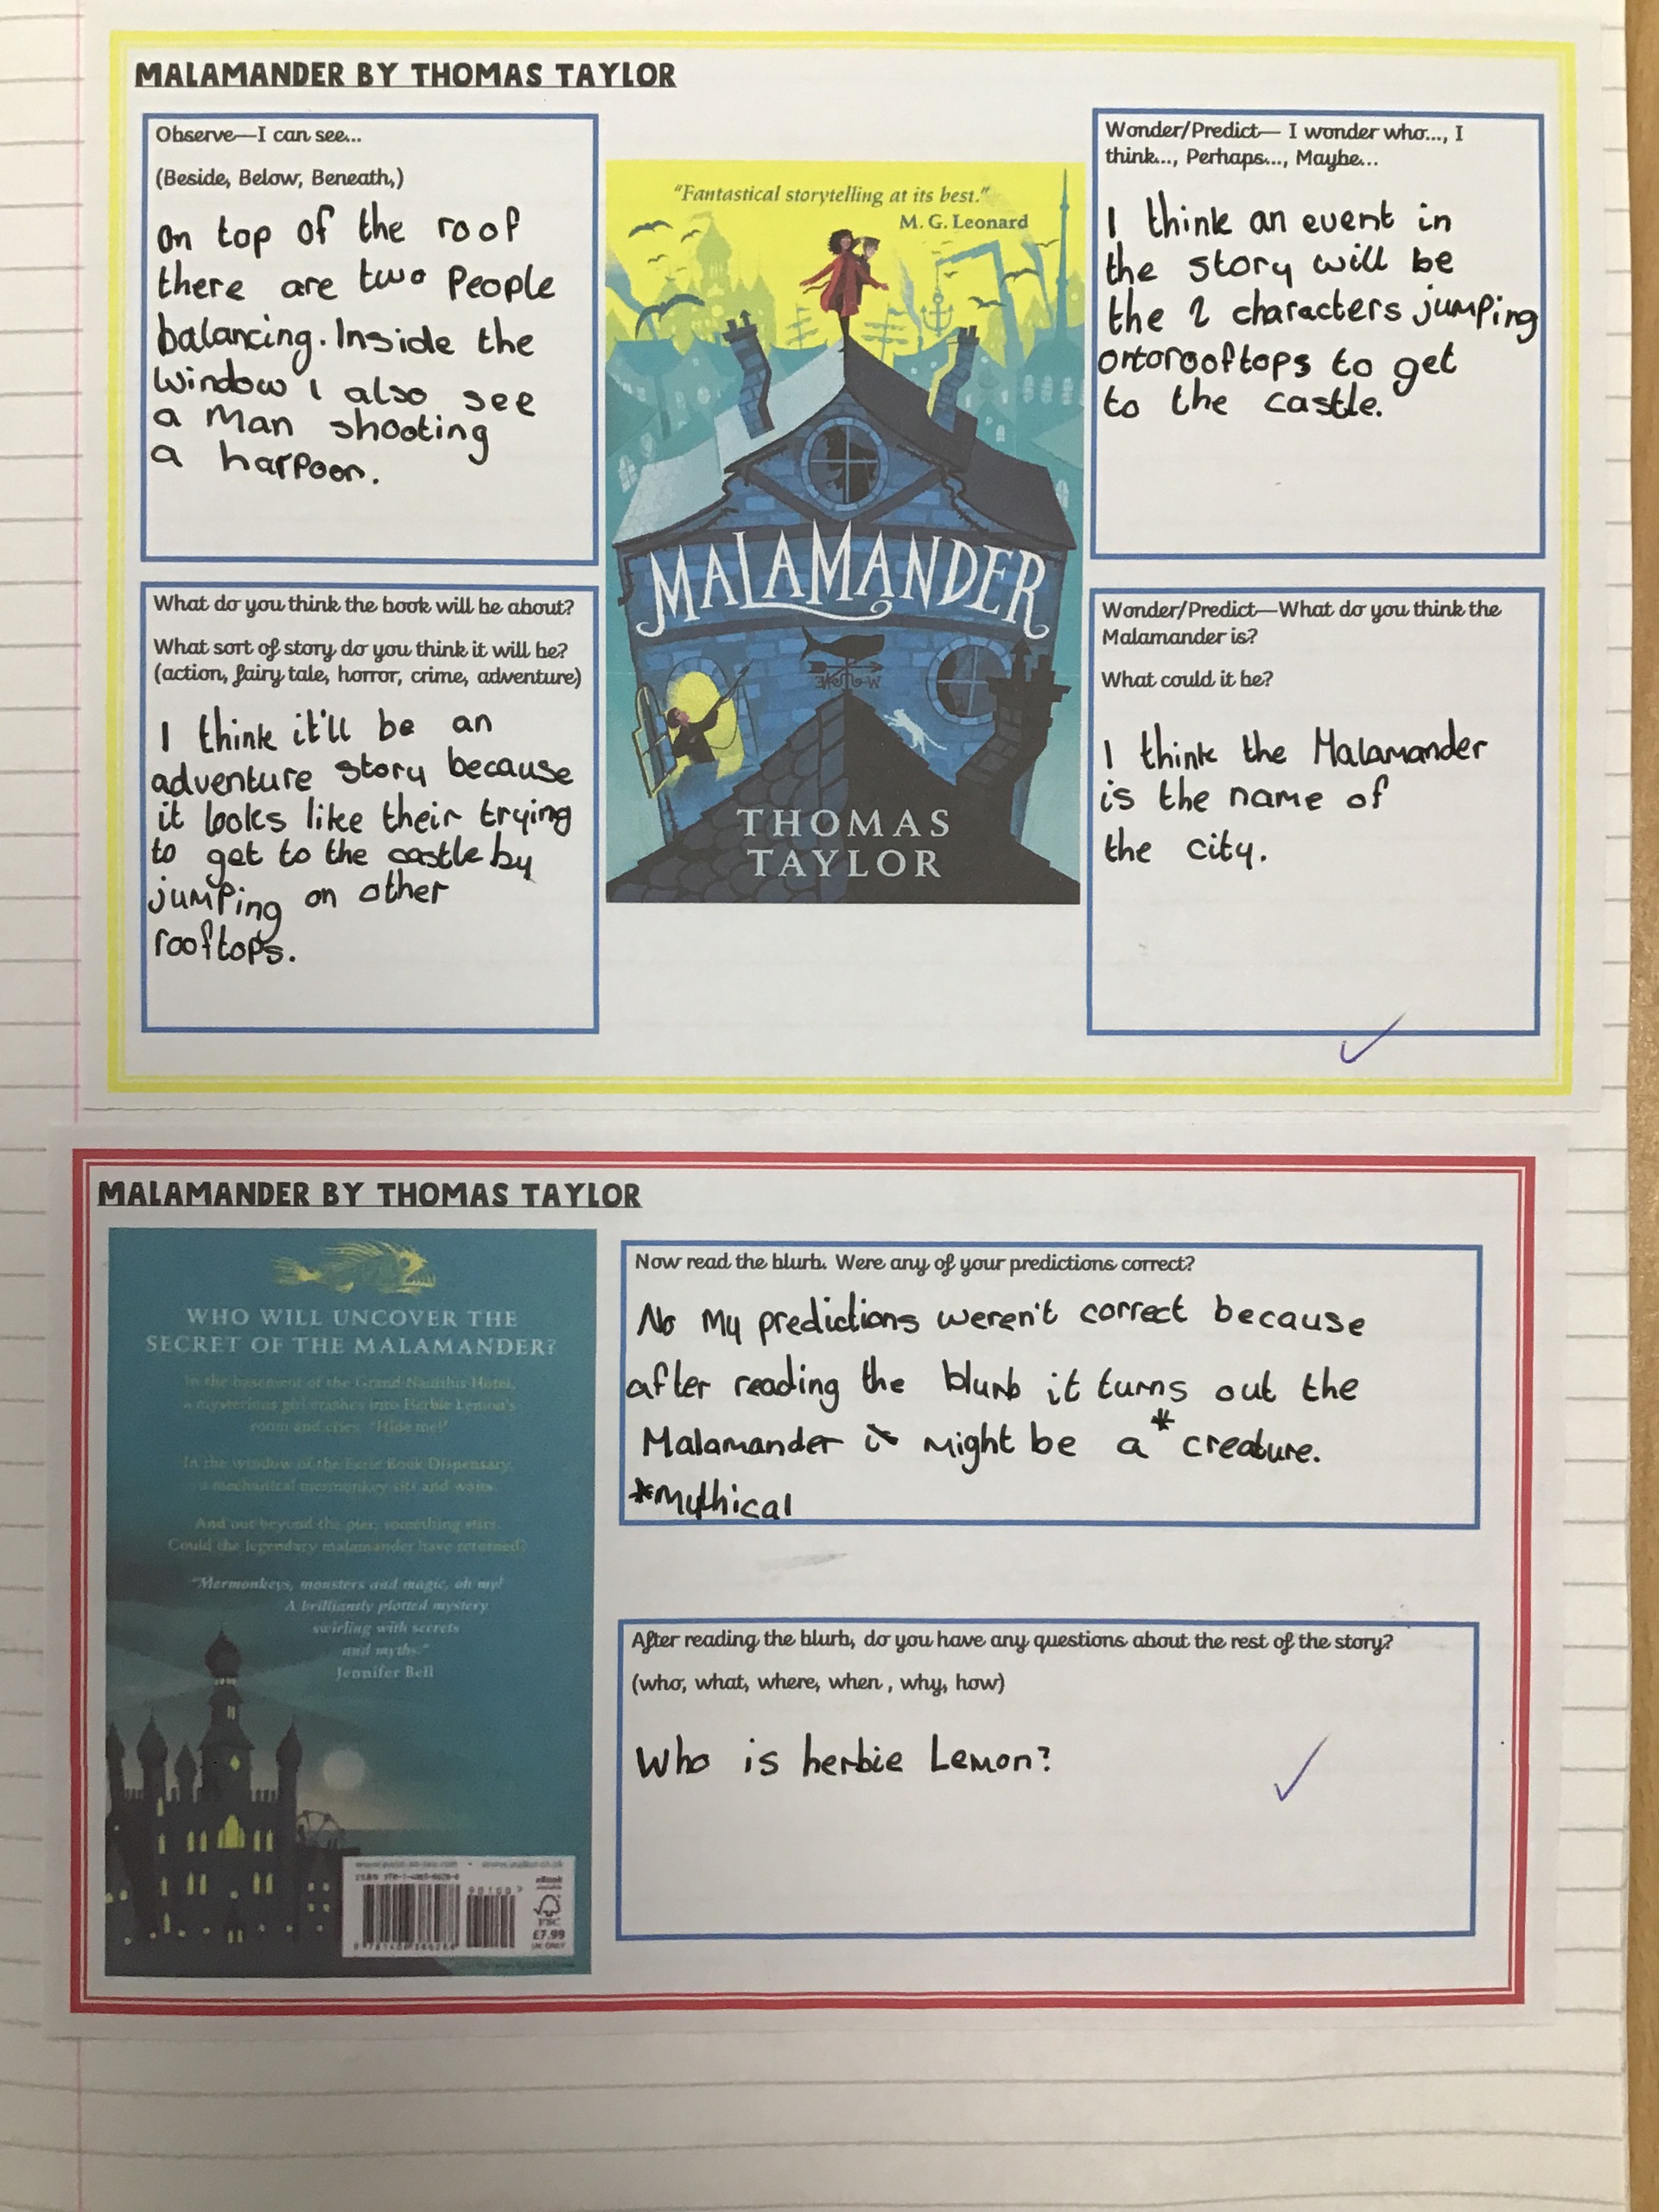 MALAMANDER BY THOMAS TAYLOR
Observe—I can see...
(Beside, Below, Beneath,)
On top of the roof
there are two People
balancing. Inside the
window I also see
a Man shooting
a harpoon.
What do you think the book will be about?
What sort of story do you think it will be?
(action, fairy tale, horror, crime, adventure)
I think it'll be an
adventure story because
it looks like their trying
to get to the castle by
jumping on other
rooftops.
"Fantastical storytelling at its best."
M. G. Leonard
MALAMANDER
THOMAS
TAYLOR
Wonder/Predict— I wonder who..., I
think..., Perhaps..., Maybe...
I think an event in
the story will be
the 2 characters jumping
ontorooftops to get
to the castle.
Wonder/Predict—What do you think the
Malamander is?
What could it be?
I think the Malamander
is the name of
the city.
MALAMANDER BY THOMAS TAYLOR
WHO WILL UNCOVER THE
SECRET OF THE MALAMANDER?
In the basement of the Grand Nautilus Hotel,
a mysterious girl crashes into Herbie Lemon's
room and cries, "Hide me!"
In the window of the Eerie Book Dispensary,
a mechanical mermonkey sits and waits.
And out beyond the pier, something stirs.
Could the legendary malamander have returned?
"Mermonkeys, monsters and magic, oh my!
A brilliantly plotted mystery
swirling with secrets
and myths."
Jennifer Bell
90100 >
eBook
available
FSC
£7.99
UK ONLY
Now read the blurb. Were any of your predictions correct?
No My predictions weren't correct because
after reading the blurb it turns out the
Malamander is might be a * creature.
*Mythical
After reading the blurb, do you have any questions about the rest of the story?
(who, what, where, when , why, how)
Who is herbie Lemon?